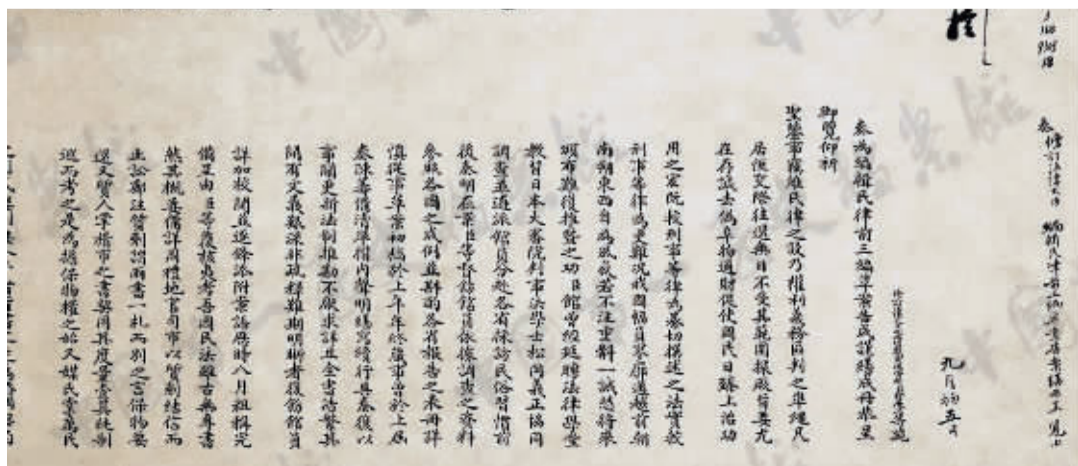 奏為編輯民律前三編草案告成謹繕成冊恭呈
御覽仰祈
聖鑒事竊維民律之設乃權利義務區判之準繩凡
居恆交際往還無日不受其範圍按厥旨要尤
在存誠去偽阜物通財使國民日臻上治功
用之宏較刑事等律為綦切撰述之法實較
刑事等律為更難況我國幅員寥廓遙越前朝
南朔東西自為風氣若不注重斠一誠恐將來
頒布難獲推暨之功臣館曾經延聘法律學堂
教習日本大審院判事法學士松岡義正協同
調查並遴派館員分赴各省採訪民俗習慣前
後奏明在案臣等督飭館員依據調查之資料
參照各國之成例並斟酌各省報告之表冊詳
慎從事草案初稿於上年年終蕆事曾於上屆
奏陳籌備清單摺內聲明繕寫後行具奏復以
事關更新法制推勘不厭求詳且全書浩繁其
間有文義艱深非疏釋難期明晰者復飭館員
詳加校閱並逐條添附案語歷時八月粗稱完
備呈由臣等覆核夷考吾國民法雖古無專書
然其概要備詳周禮地官司市以質劑結信而
止訟鄭注質劑謂兩書一札而別之言保物要
還又質人掌稽市之書契同其度量壹其純制
巡而考之是為擔保物權之始又媒氏掌萬民